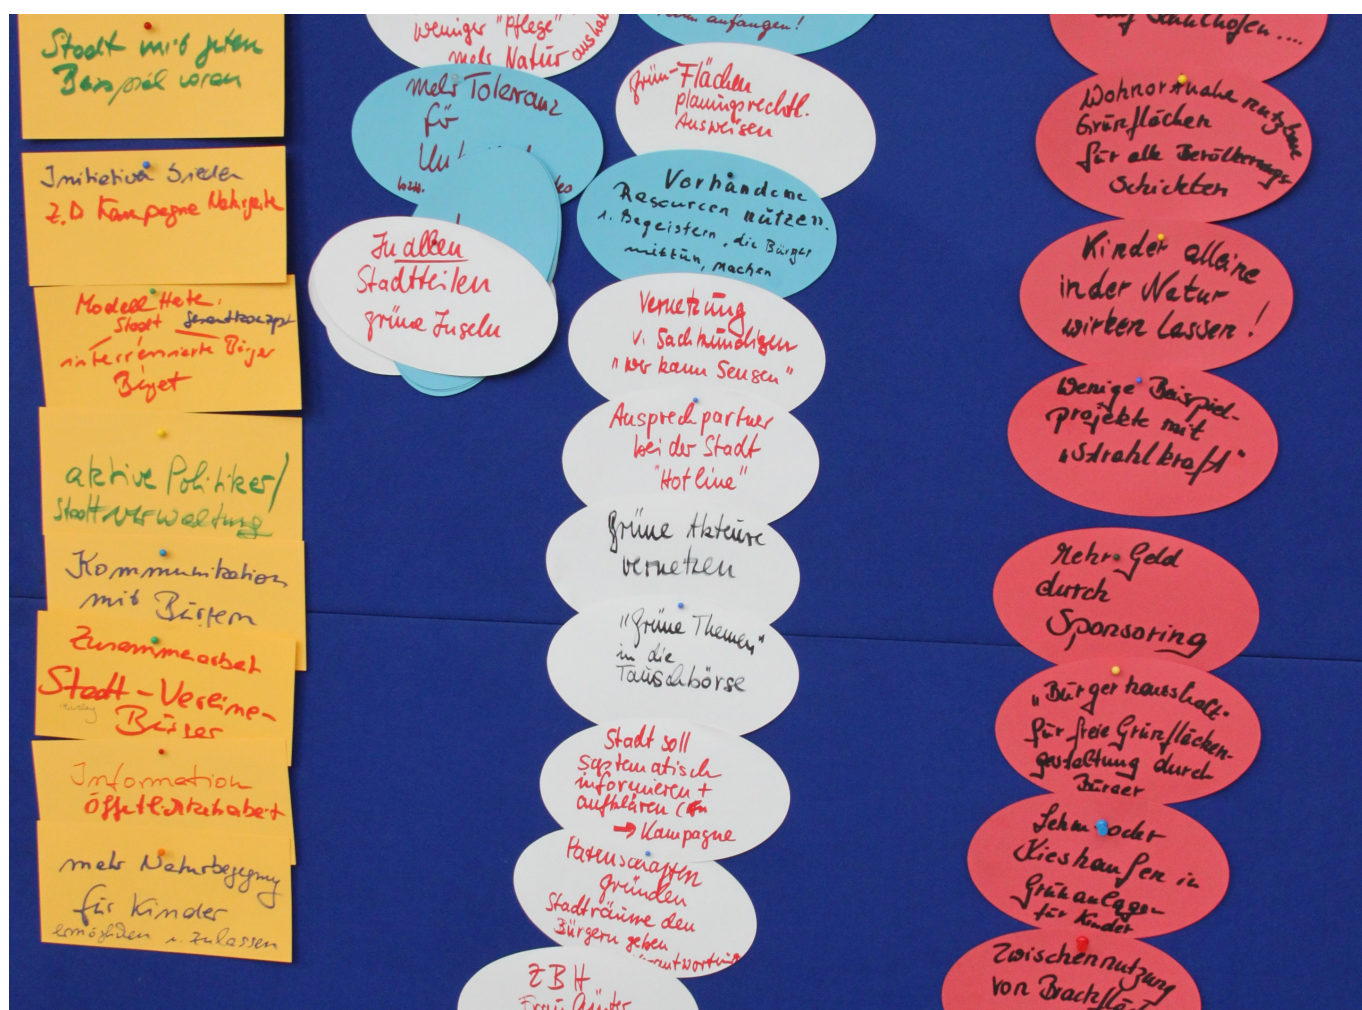 Stadt mit gutem
Beispiel voran
Initiative Bieder
z.B Kampagne Naturgarten
Modell Hate.
Stadt Gesamtkonzept
interessierte Bürger
Büget
aktive Politiker/
Stadtverwaltung
Kommunikation
mit Bürgern
Zusammenarbeit
Stadt-Vereine-
Bürger
Information
öffentlichkeitsarbeit
mehr Naturbegegnung
für Kinder
ermöglichen u. zulassen
weniger "Pflege"
mehr Natur aushalten
mehr Toleranz
für
bzw.
In allen
Stadtteilen
grüne Inseln
anfangen!
grün-Flächen
planungsrechtl.
Ausweisen
Vorhandene
Resourcen nutzen.
1. Begeistern, die Bürger
mittun, machen
Vernetzung
v. Sachkundigen
"wer kann Sensen"
Ansprechpartner
bei der Stadt
"Hotline"
grüne Akteure
vernetzen
"grüne Themen"
in die
Tauschbörse
Stadt soll
systematisch
informieren +
aufklären
→ Kampagne
Patenschaften
gründen
Stadträume den
Bürgern geben
ZBH
Frau Günter
auf Schulhöfen....
Wohnortnahe nutzbare
Grünflächen
für alle Bevölkerungs
schichten
Kinder alleine
in der Natur
wirken lassen!
Wenige Beispiel-
projekte mit
"Strahlkraft"
Mehr Geld
durch
Sponsoring
"Bürgerhaushalt"
für freie Grünflächen-
gestaltung durch
Bürger
Lehm oder
Kieshaufen in
Grünanlagen
für Kinder
Zwischennutzung
von